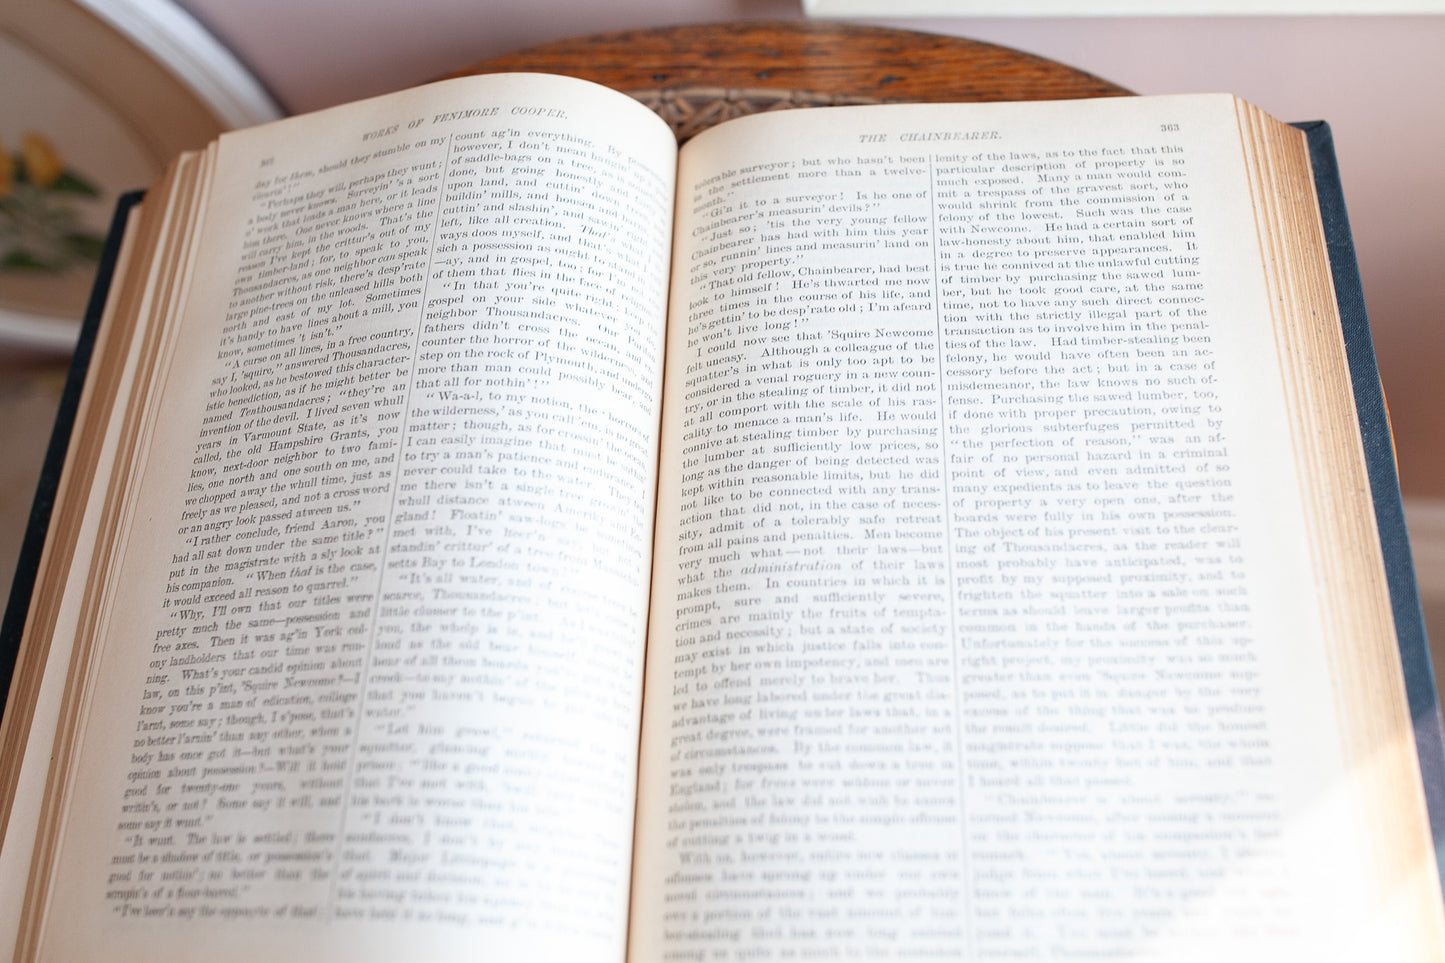 362
WORKS OF FENIMORE COOPER.
day for them, should they stumble on my
clearin'!"
"Perhaps they will, perhaps they wunt;
a body never knows. Surveyin' 's a sort
o' work that leads a man here, or it leads
him there. One never knows where a line
will carry him, in the woods. That's the
reason I've kept the crittur's out of my
own timber-land; for, to speak to you,
Thousandacres, as one neighbor can speak
to another without risk, there's desp'rate
large pine-trees on the unleased hills both
north and east of my lot. Sometimes
it's handy to have lines about a mill, you
know, sometimes 't isn't."
"A curse on all lines, in a free country,
say I, 'squire," answered Thousandacres,
who looked, as he bestowed this character-
istic benediction, as if he might better be
named Tenthousandacres; "they're an
invention of the devil. I lived seven whull
years in Varmount State, as it's now
called, the old Hampshire Grants, you
know, next-door neighbor to two fami-
lies, one north and one south on me, and
we chopped away the whull time, just as
freely as we pleased, and not a cross word
or an angry look passed atween us."
"I rather conclude, friend Aaron, you
had all sat down under the same title?"
put in the magistrate with a sly look at
his companion. "When that is the case,
it would exceed all reason to quarrel."
"Why, I'll own that our titles were
pretty much the same—possession and
free axes. Then it was ag'in York col-
ony landholders that our time was run-
ning. What's your candid opinion about
law, on this p'int, 'Squire Newcome?—I
know you're a man of edication, college
l'arnt, some say; though, I s'pose, that's
no better l'arnin' than any other, when a
body has once got it—but what's your
opinion about possession?—Will it hold
good for twenty-one years, without
writin's, or not? Some say it will, and
some say it wunt."
"It wunt. The law is settled; there
must be a shadow of title, or possession's
good for nothin'; no better than the
scrapin's of a flour-barrel."
"I've heer'n say the opposite of that
count ag'in everything. By
however, I don't mean hangin' up a
of saddle-bags on a tree, as is
done, but going honestly and
upon land, and cuttin' down trees
buildin' mills, and housen and barns
cuttin' and slashin', and sawin' right
left, like all creation. That's what
ways doos myself, and that's what I
sich a possession as ought to stand
—ay, and in gospel, too; for I'm not
of them that flies in the face of
"In that you're quite right; keep the
gospel on your side whatever you
neighbor Thousandacres. Our Puritan
fathers didn't cross the ocean, and
counter the horror of the wilderness, and
step on the rock of Plymouth, and undergo
more than man could possibly bear, and
that all for nothin'!"
"Wa-a-l, to my notion, the 'horrors of
the wilderness,' as you call 'em, is no great
matter; though, as for crossin' the ocean,
I can easily imagine that must be
to try a man's patience and endurance. I
never could take to the water. They tell
me there isn't a single tree growin' the
whull distance atween Ameriky and En-
gland! Floatin' saw-logs be sometimes
met with, I've heer'n say, but not a
standin' crittur' of a tree from Massachu-
setts Bay to London town!"
"It's all water, and of course trees be
scarce, Thousandacres; but let's come a
little clusser to the p'int. As I was
you, the whelp is in, and he'll growl as
loud as the old bear himself, should he
hear of all them boards
creek—to say nothin' of the
that you haven't begun to put into the
water."
"Let him growl," returned the old
squatter, glancing surlily toward
prison; "like a good many other
that I've met with,
his bark is worse than his bite."
"I don't know that,
THE CHAINBEARER.
363
tolerable surveyor; but who hasn't been
in the settlement more than a twelve-
month."
"Gi'n it to a surveyor! Is he one of
Chainbearer's measurin' devils?"
"Just so; 'tis the very young fellow
Chainbearer has had with him this year
or so, runnin' lines and measurin' land on
this very property."
"That old fellow, Chainbearer, had best
look to himself! He's thwarted me now
three times in the course of his life, and
he's gettin' to be desp'rate old; I'm afeard
he won't live long!"
I could now see that 'Squire Newcome
felt uneasy. Although a colleague of the
squatter's in what is only too apt to be
considered a venal roguery in a new coun-
try, or in the stealing of timber, it did not
at all comport with the scale of his ras-
cality to menace a man's life. He would
connive at stealing timber by purchasing
the lumber at sufficiently low prices, so
long as the danger of being detected was
kept within reasonable limits, but he did
not like to be connected with any trans-
action that did not, in the case of neces-
sity, admit of a tolerably safe retreat
from all pains and penalties. Men become
very much what—not their laws—but
what the administration of their laws
makes them. In countries in which it is
prompt, sure and sufficiently severe,
crimes are mainly the fruits of tempta-
tion and necessity; but a state of society
may exist in which justice falls into con-
tempt by her own impotency, and men are
led to offend merely to brave her. Thus
we have long labored under the great dis-
advantage of living under laws that, in a
great degree, were framed for another set
of circumstances. By the common law, it
was only trespass to cut down a tree in
England; for trees were seldom or never
stolen, and the law did not wish to annex
the penalties of felony to the simple offense
of cutting a twig in a wood.
With us, however, entire new classes of
offenses have sprung up under our own
novel circumstances; and we probably
owe a portion of the vast amount of tim-
ber-stealing that has now long existed
among us quite as much to the mistaken
lenity of the laws, as to the fact that this
particular description of property is so
much exposed. Many a man would com-
mit a trespass of the gravest sort, who
would shrink from the commission of a
felony of the lowest. Such was the case
with Newcome. He had a certain sort of
law-honesty about him, that enabled him
in a degree to preserve appearances. It
is true he connived at the unlawful cutting
of timber by purchasing the sawed lum-
ber, but he took good care, at the same
time, not to have any such direct connec-
tion with the strictly illegal part of the
transaction as to involve him in the penal-
ties of the law. Had timber-stealing been
felony, he would have often been an ac-
cessory before the act; but in a case of
misdemeanor, the law knows no such of-
fense. Purchasing the sawed lumber, too,
if done with proper precaution, owing to
the glorious subterfuges permitted by
"the perfection of reason," was an af-
fair of no personal hazard in a criminal
point of view, and even admitted of so
many expedients as to leave the question
of property a very open one, after the
boards were fully in his own possession.
The object of his present visit to the clear-
ing of Thousandacres, as the reader will
most probably have anticipated, was to
profit by my supposed proximity, and to
frighten the squatter into a sale on such
terms as should leave larger profits than
common in the hands of the purchaser.
Unfortunately for the success of this up-
right project, my proximity was so much
greater than even 'Squire Newcome sup-
posed, as to put it in danger by the very
excess of the thing that was to produce
the result desired. Little did the honest
magistrate suppose that I was, the whole
time, within twenty feet of him, and that
I heard all that passed.
"Chainbearer is about seventy,"
turned Newcome, after musing a moment